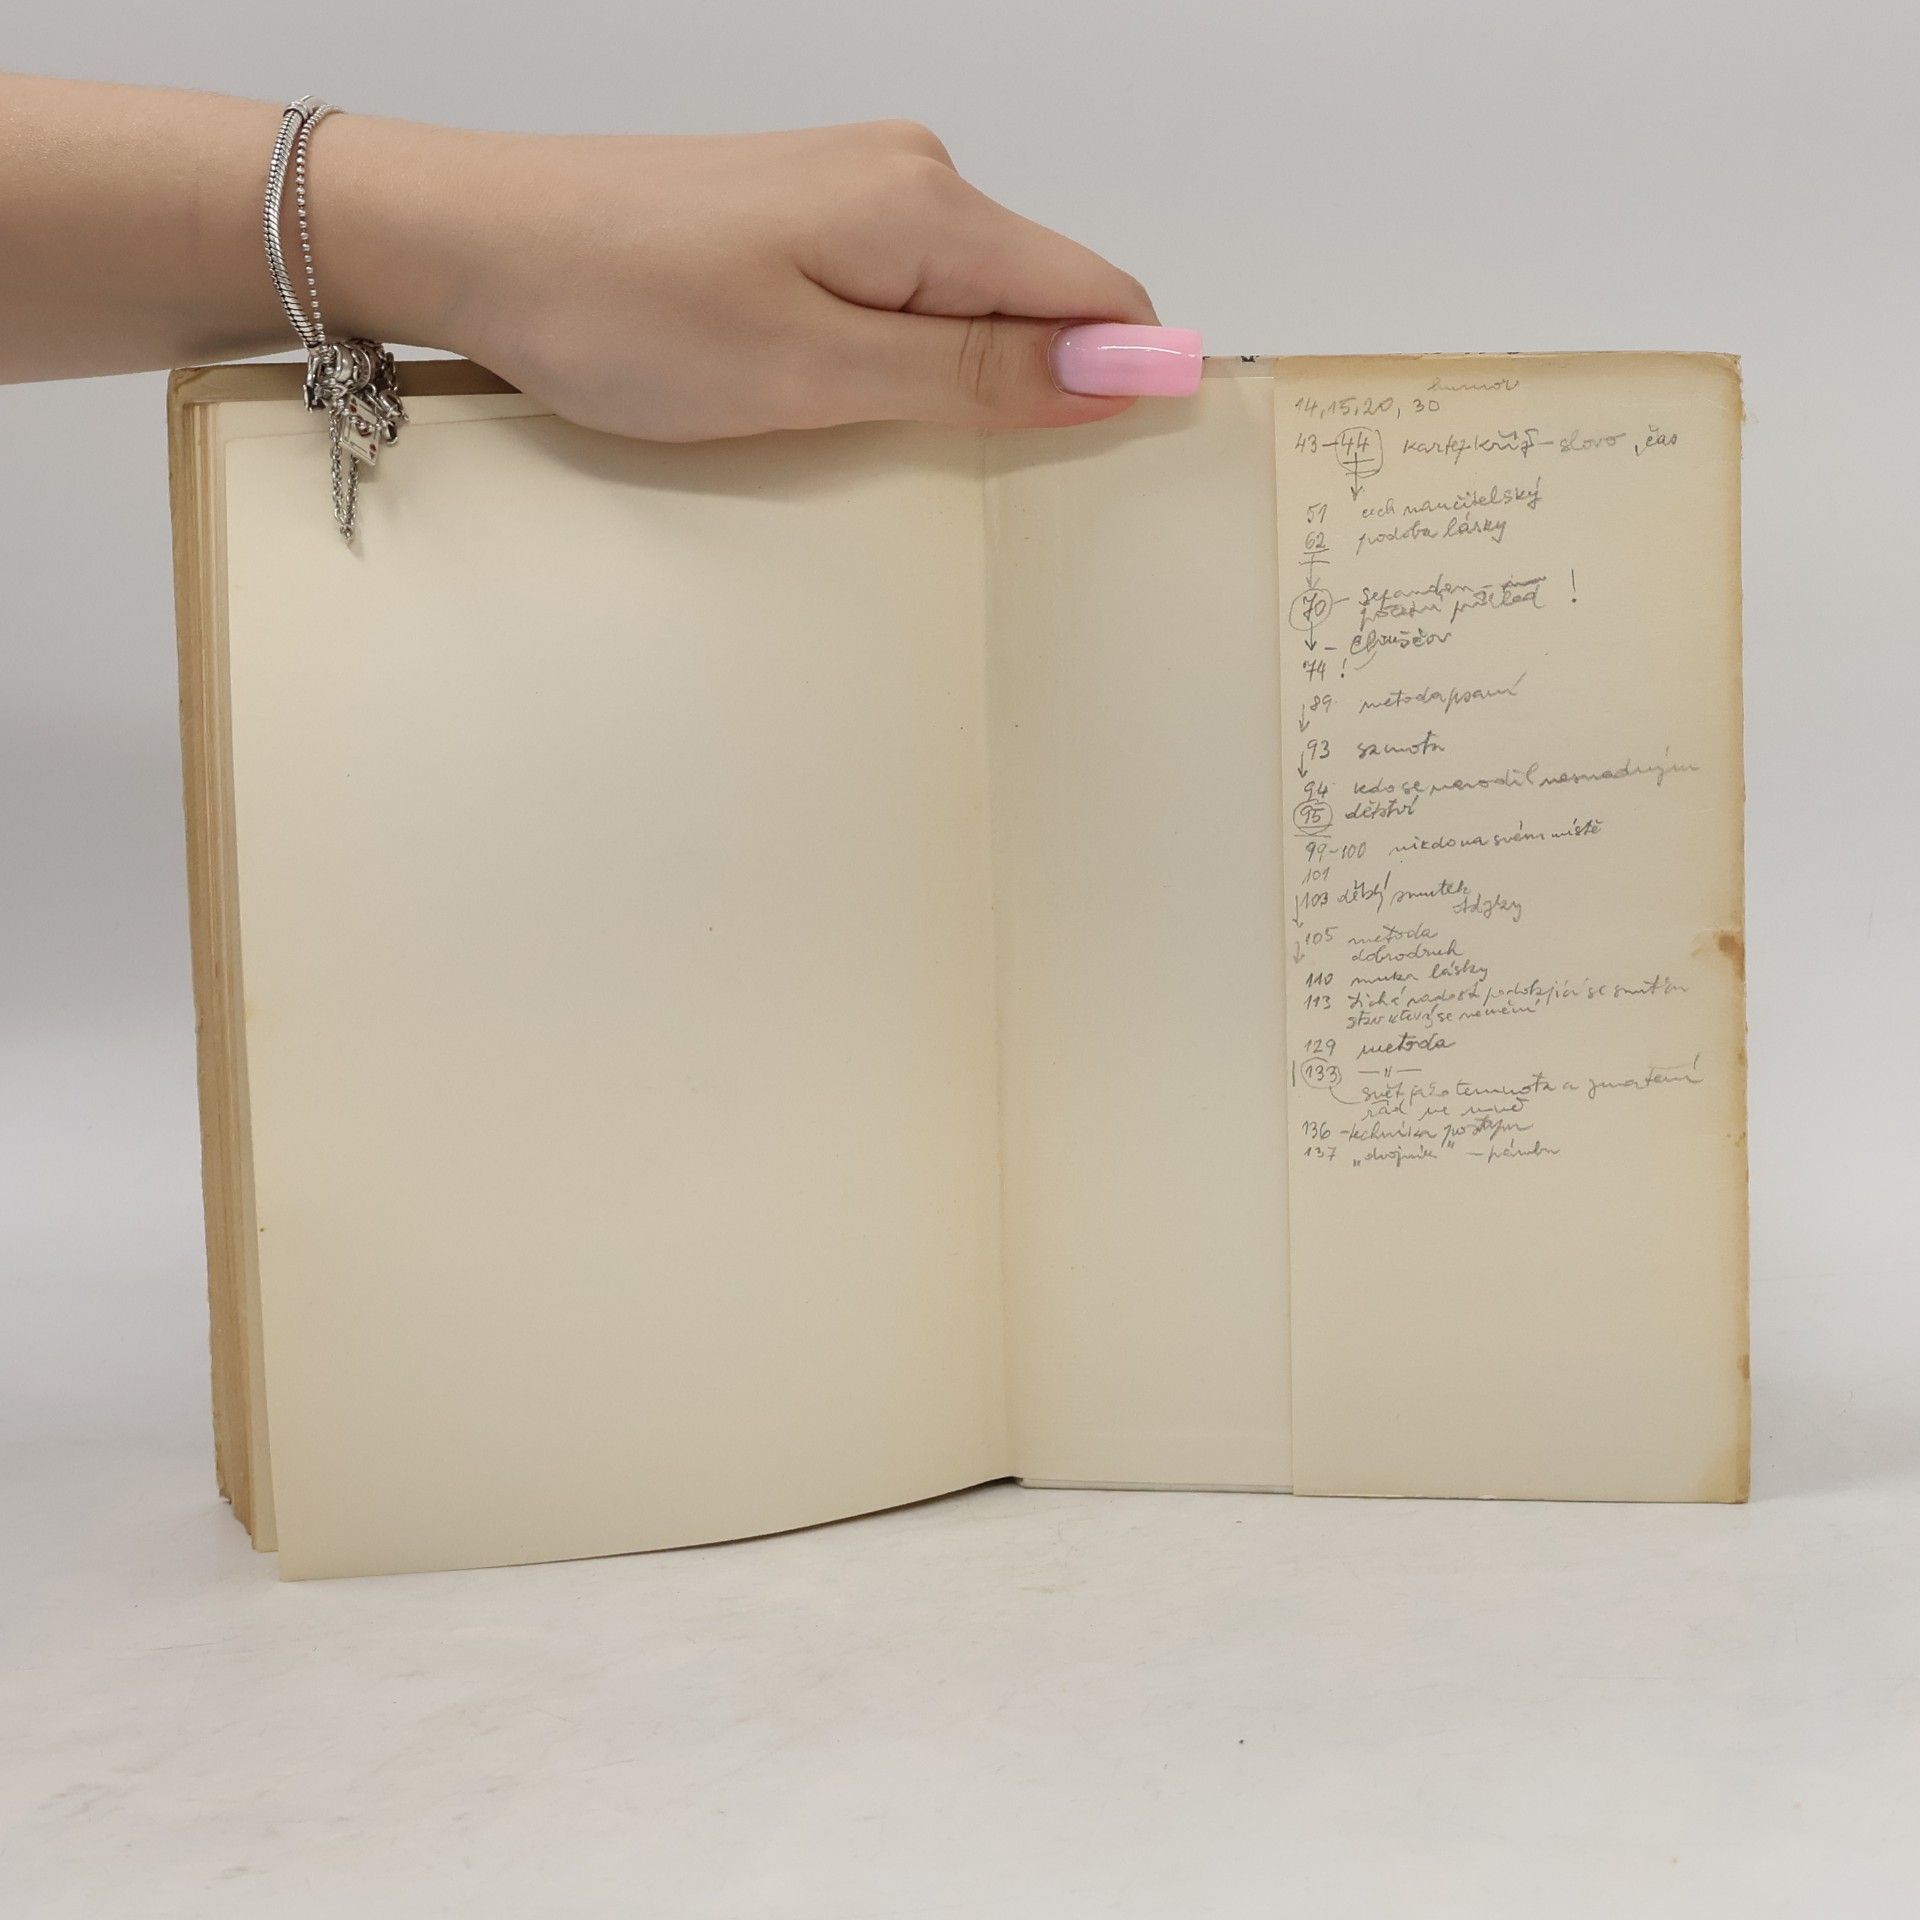 humor
14, 15, 20, 30
43-44 kříž - slovo, čas
51 cech naučitelský
62 podoba lásky
70 - !
- Chruščov
74 !
89 metoda psaní
93 samota
94 kdo se narodil nesnadným
95 dětství
99-100 nikdo na svém místě
101
103 dětský smutek
otázky
105 metoda
dobrodruh
110 muka lásky
113 tichá radost podobající se smutku
stav který se nemění
129 metoda
133 — " —
svět jako temnota a zmatení
řád ve mně
136 - technika postupu
137 „dvojník" -